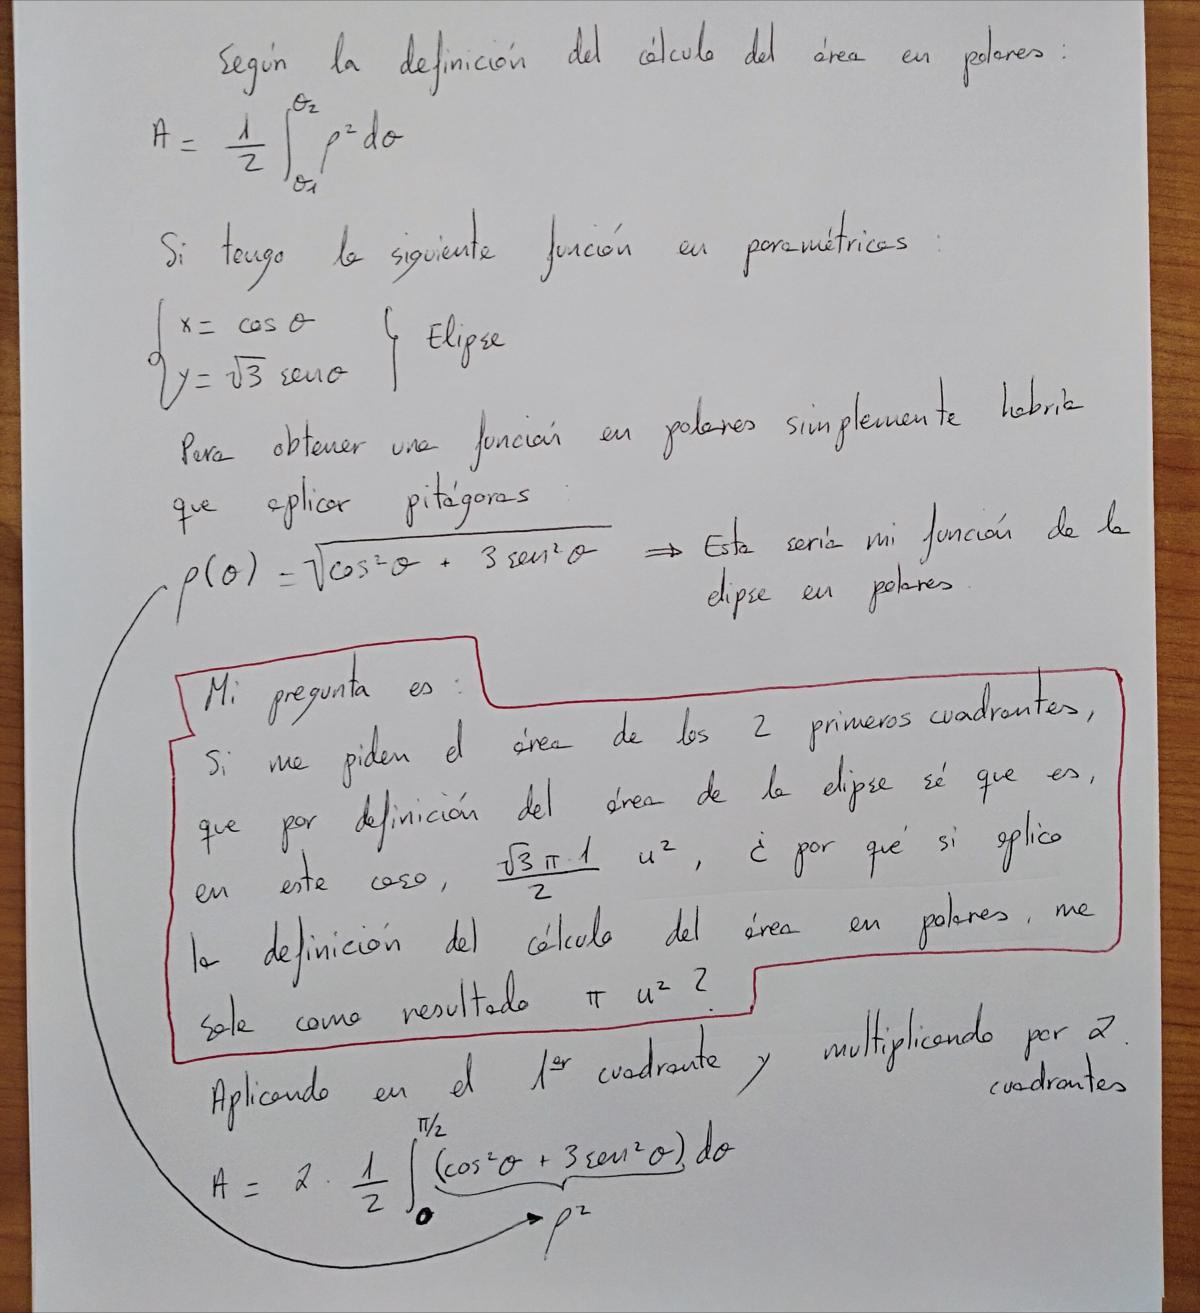 Según la definición del cálculo del área en polares:
A = 1/2 ∫_{θ1}^{θ2} ρ² dθ
Si tengo la siguiente función en paramétricas:
{ x = cos θ
y = √3 sen θ } Elipse
Para obtener una función en polares simplemente habría
que aplicar pitágoras:
ρ(θ) = √(cos²θ + 3 sen²θ) ⇒ Esta sería mi función de la
elipse en polares.
Mi pregunta es:
Si me piden el área de los 2 primeros cuadrantes,
que por definición del área de la elipse sé que es,
en este caso, √3 π · 1 / 2 u², ¿por qué si aplico
la definición del cálculo del área en polares, me
sale como resultado π u²?
Aplicando en el 1er cuadrante y multiplicando por 2
cuadrantes.
A = 2 · 1/2 ∫_0^{π/2} (cos²θ + 3 sen²θ) dθ
ρ²